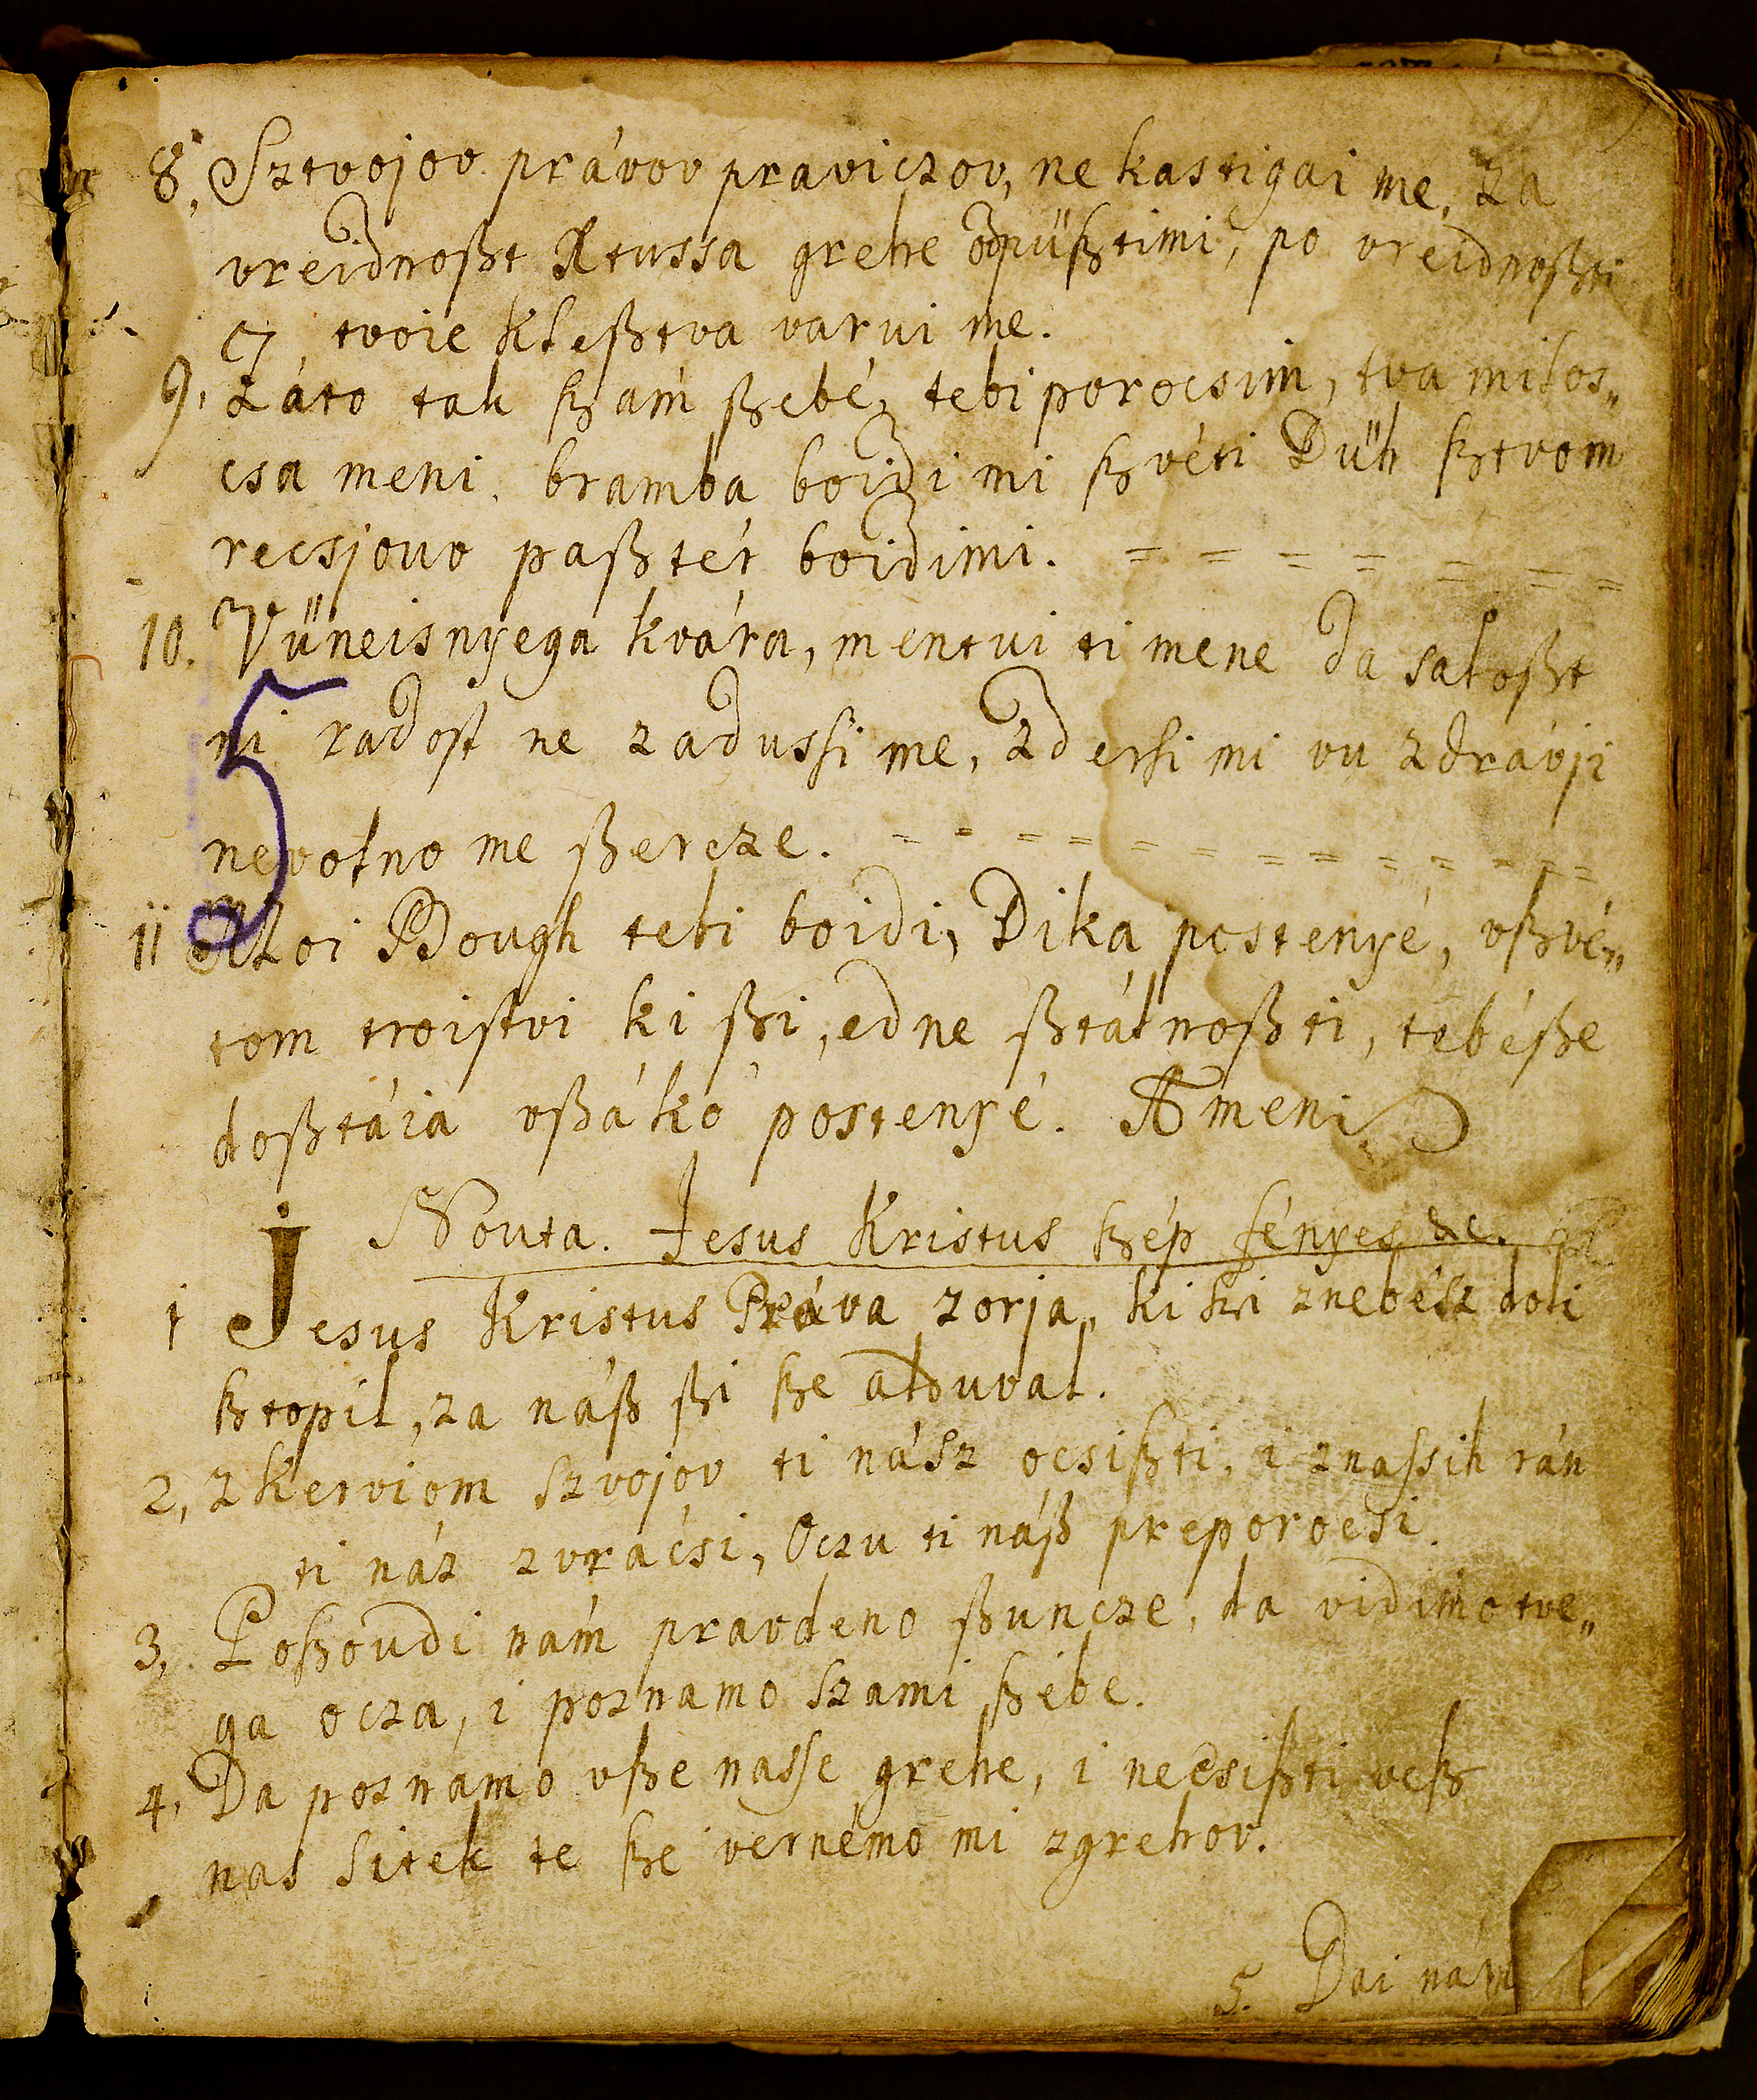 8, Sztvojov právov praviczov, ne kastigai me, za
vreidnoßt Xtussa grehe odpüßtimi, po vreidnoßti
tvoie kleßtva varui me.
9, Záto tak ßzám ßebé, tebi porocsim, tva milos„
csa meni. bramba boidi mi ßvéti Düh ßtvom
recsjouv paßtér boidimi. = = = = = = =
10. Vüneisnyega kvára, mentui ti mene da saloßt
ni radost ne zadussi me, zdersi mi vu zdrávji
nevolno me ßercze. = = = = = = = = = = =
11 Moi Bough tebi boidi, Dika postenyé, vßvé„
tom troistvi ki ßi, edne ßtálnoßti, tebéße
doßtája vßáko postenyé. Ameni
Nouta. Jesus Kristus ßép fényes &c.
1 Jesus Kristus Práva zorja, ki ßi znebész doli
ßtopil, za náß ßi ße alduval.
2, zkerviom szvojov ti nász ocsißti, i znassih rán
ti náz zvrácsi, Oczu ti náß preporocsi.
3, Poßoudi nám pravdeno ßuncze, da vidimo tve„
ga ocza, i poznamo szami ßebe.
4, Da poznamo vße nasse grehe, i necsißti veß
nas sitek te ße vernémo mi zgrehov.
5. Dai nám